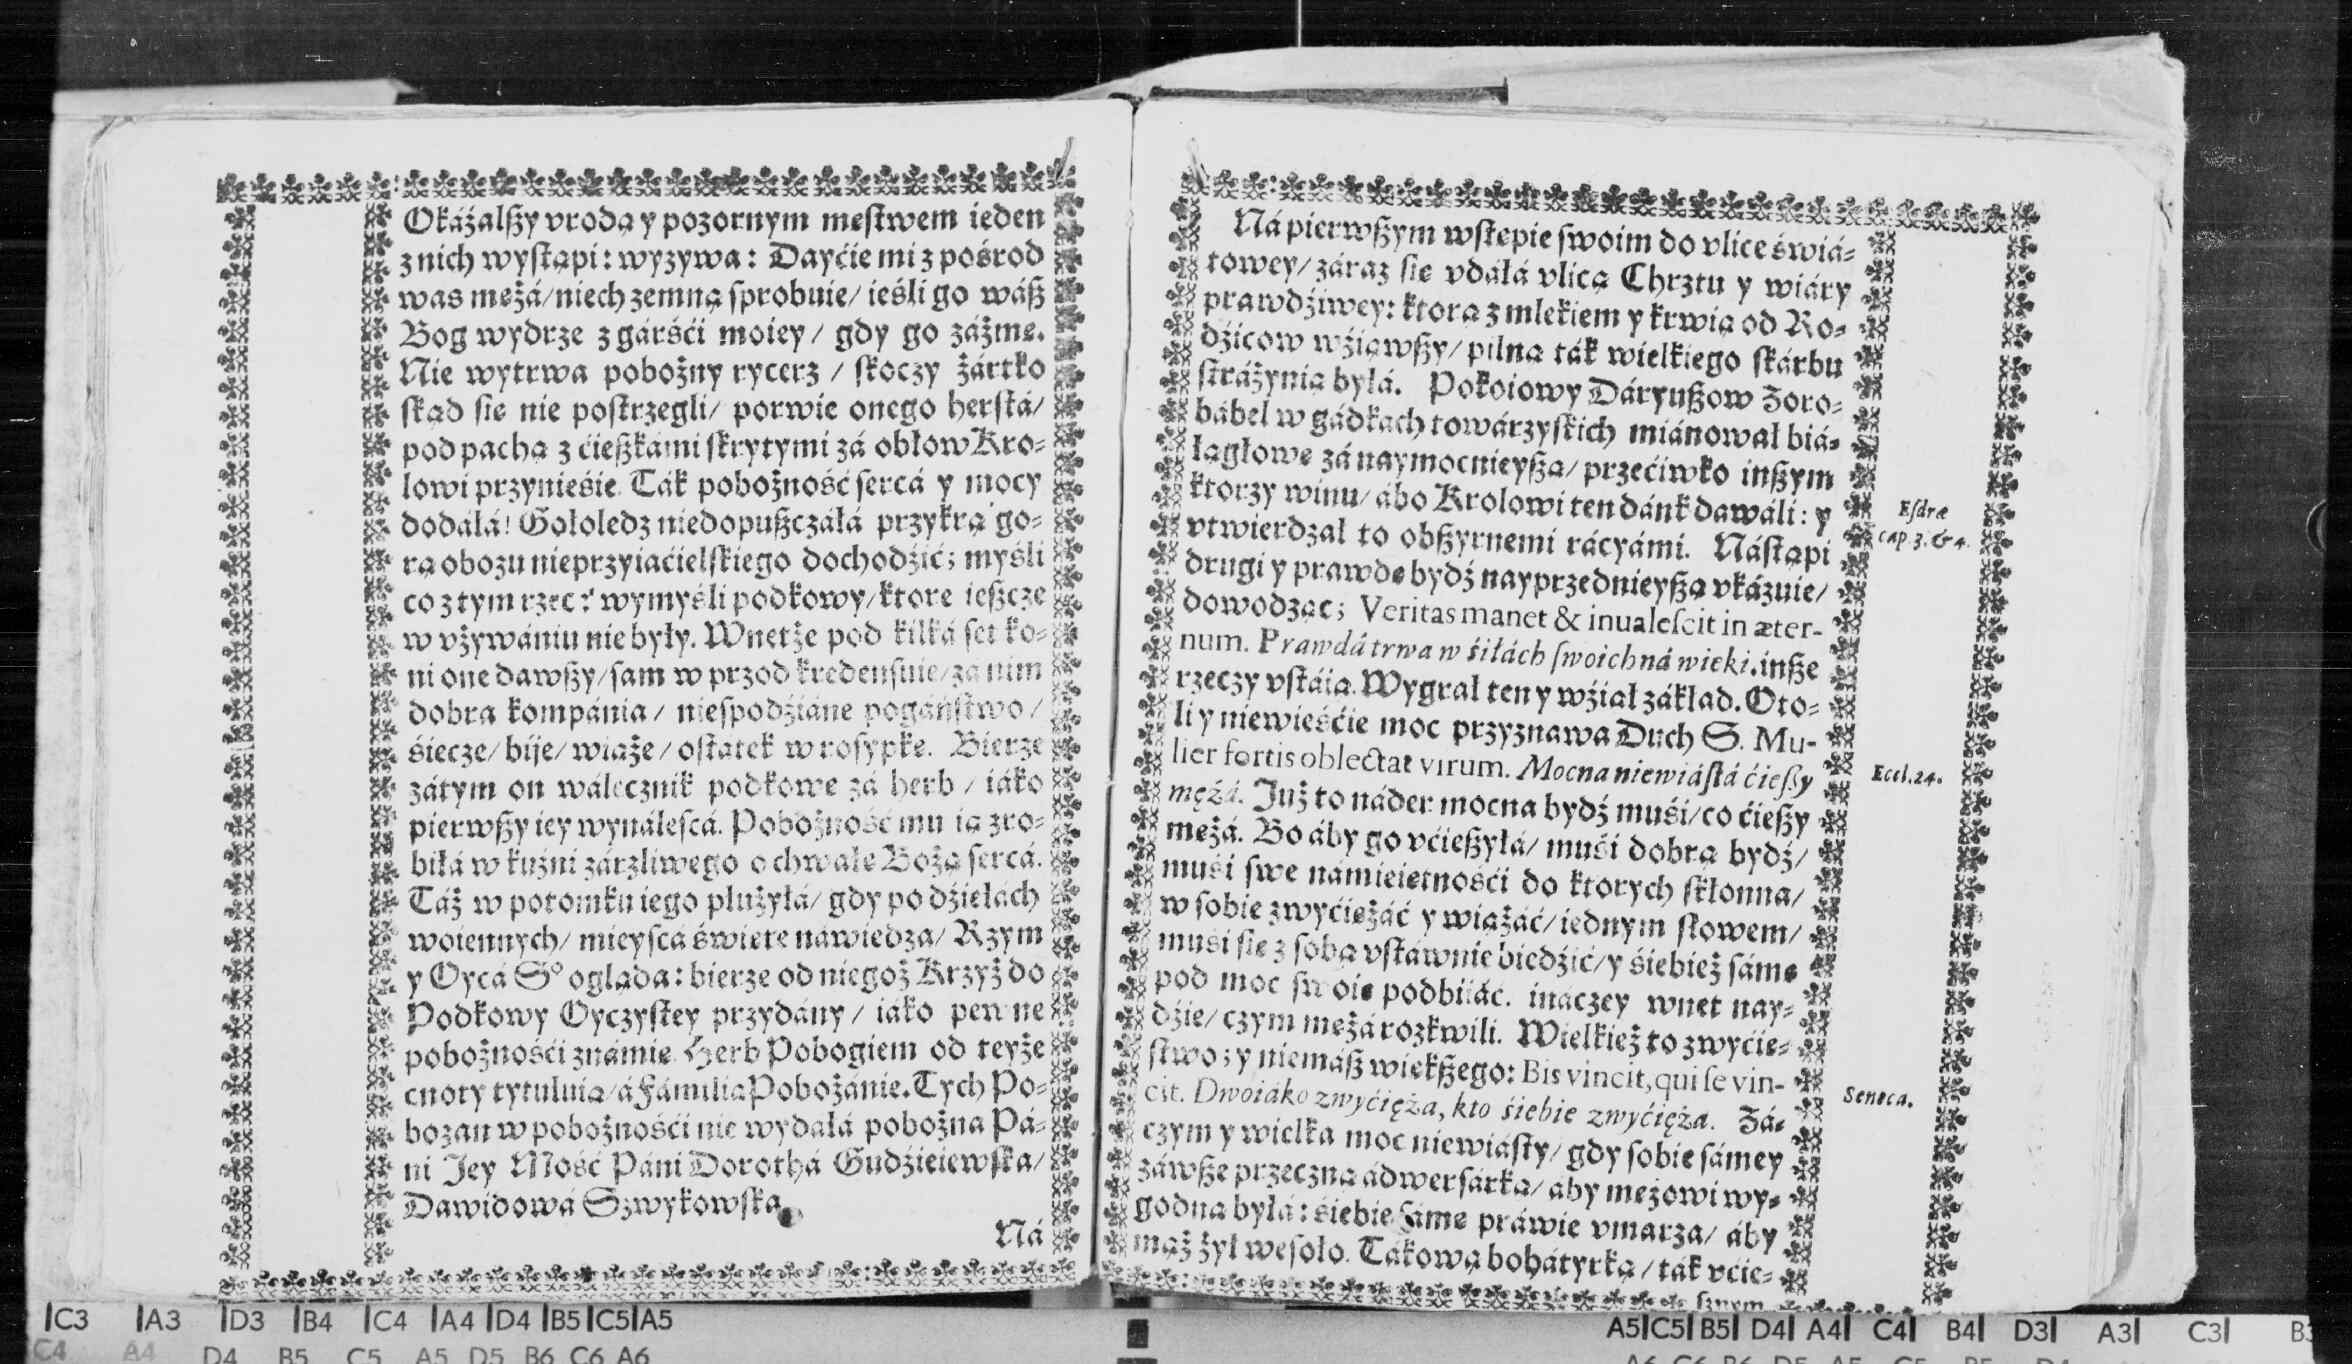 Okázálßy vrodą y pozornym męstwem ieden
z nich wystąpi: wyzywa: Dayćie mi z pośrod
was mężá/ niech zemną sprobuie/ ieśli go wáß
Bog wydrze z gárśći moiey/ gdy go záżmę.
Nie wytrwa pobożny rycerz/ skoczy żártko
skąd się nie postrzegli/ porwie onego hersztá/
pod pachą z ćięßkámi skrytymi zá obłow Kro-
lowi przynieśie. Ták pobożność sercá y mocy
dodáłá! Gołoledz niedopußczáłá przykrą go-
rą obozu nieprzyiaćielskiego dochodźić; myśli
co z tym rzec? wymyśli podkowy/ ktore ießcze
w vżywániu nie były. Wnetże pod kilká set ko-
ni one dawßy/ sam w przod kredensuie/ zá nim
dobra kompánia/ niespodźiáne pogáństwo/
śiecze/ bije/ wiąże/ ostátek w rosypkę. Bierze
zátym on wálecznik podkowę zá herb/ iáko
pierwßy iey wynálescá. Pobożność mu ią zro-
biłá w kuźni zárzliwego o chwałę Bożą sercá.
Táż w potomku iego płużyłá/ gdy po dźiełách
woiennych/ mieyscá święte náwiedza/ Rzym
y Oycá S° ogląda: bierze od niegoż Krzyż do
Podkowy Oyczystey przydány/ iáko pewne
pobożnośći známię. Herb Pobogiem od teyże
cnoty tytułuią/ á Fámilią Pobożánie. Tych Po-
bożan w pobożnośći nie wydáłá pobożna Pá-
ni Jey Mość Páni Dorothá Gudźieiewska/
Dawidowá Szwykowska
Ná
Ná pierwßym wstępie swoim do vlice świá-
towey/ záraz się vdáłá vlicą Chrztu y wiáry
prawdźiwey: ktorą z mlekiem y krwią od Ro-
dźicow wźiąwßy/ pilną ták wielkiego skárbu
strażynią byłá. Pokoiowy Dáryußow Zoro-
bábel w gádkách towárzyskich miánował biá-
łągłowę zá naymocnieyßą/ przećiwko inßym
ktorzy winu/ ábo Krolowi ten dánk dawáli: y
vtwierdzał to obßyrnemi rácyámi. Nástąpi
drugi y prawdę bydź nayprzednieyßą vkázuie/
dowodząc; Veritas manet & inualescit in æter-
num. Prawdá trwa w śiłách swoich ná wieki. inße
rzeczy vstáią. Wygrał ten y wźiął zakład. Oto-
li y niewieśćie moc przyznawa Duch S. Mu-
lier fortis oblectat virum. Mocna niewiástá ćießy
mężá. Już to náder mocna bydź muśi/ co ćießy
mężá. Bo áby go vćießyłá/ muśi dobrą bydź/
muśi swe námieietnośći do ktorych skłonna/
w sobie zwyćiężáć y wiązáć/ iednym słowem/
muśi się z sobą vstáwnie biedźić/ y śiebież sámę
pod moc swoię podbiiáć. ináczey wnet nay-
dźie/ czym mężá rozkwili. Wielkież to zwyćię-
stwo; y niemáß większego: Bis vincit, qui se vin-
cit. Dwoiáko zwyćięża, kto śiebie zwyćięża. Zá-
czym y wielka moc niewiásty/ gdy sobie sámey
záwße przeczną ádwersárką/ áby mężowi wy-
godną byłá: śiebie sámę práwie vmarza/ áby
mąż żył wesoło. Tákową bohátyrką/ ták vćie-
sznym
Esdræ
cap. 3. & 4.
Eccl. 24.
Seneca.
C3 A3 D3 B4 C4 A4 D4 B5 C5 A5
C4 A4 D4 B5 C5 A5 D5 B6 C6 A6
A5 C5 B5 D4 A4 C4 B4 D3 A3 C3 B3
A6 C6 B6 D5 A5 C5 B5 D4